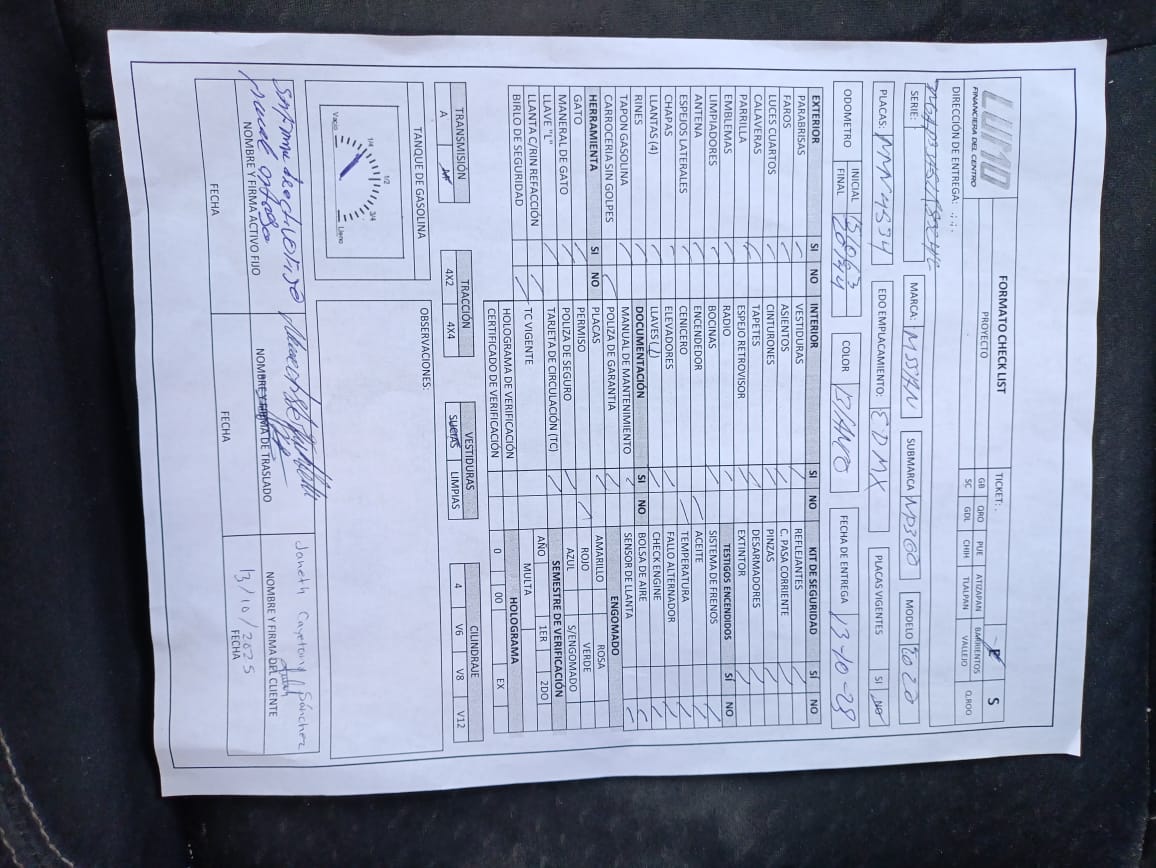 LUMO
FINANCIERA DEL CENTRO
FORMATO CHECK LIST
PROYECTO
TICKET:
E S
DIRECCIÓN DE ENTREGA:
GB QRO PUE ATIZAPAN BARRIENTOS Q.ROO
SC GDL CHIH TLALPAN VALLEJO
SERIE:
MARCA: NISSAN
SUBMARCA NP300
MODELO 2020
PLACAS
EDO EMPLACAMIENTO: EDMX
PLACAS VIGENTES SI NO
ODOMETRO INICIAL
FINAL
COLOR
FECHA DE ENTREGA
EXTERIOR SI NO
PARABRISAS
FAROS
LUCES CUARTOS
CALAVERAS
PARRILLA
EMBLEMAS
LIMPIADORES
ANTENA
ESPEJOS LATERALES
CHAPAS
LLANTAS (4)
RINES
TAPON GASOLINA
CARROCERIA SIN GOLPES
HERRAMIENTA SI NO
GATO
MANERAL DE GATO
LLAVE "L"
LLANTA C/RIN REFACCIÓN
BIRLO DE SEGURIDAD
INTERIOR SI NO
VESTIDURAS
ASIENTOS
CINTURONES
TAPETES
ESPEJO RETROVISOR
RADIO
BOCINAS
ENCENDEDOR
CENICERO
ELEVADORES
LLAVES (1)
DOCUMENTACIÓN SI NO
MANUAL DE MANTENIMIENTO
POLIZA DE GARANTIA
PLACAS
PERMISO
POLIZA DE SEGURO
TARJETA DE CIRCULACIÓN (TC)
TC VIGENTE
HOLOGRAMA DE VERIFICACIÓN
CERTIFICADO DE VERIFICACIÓN
KIT DE SEGURIDAD SI NO
REFLEJANTES
C. PASA CORRIENTE
PINZAS
DESARMADORES
EXTINTOR
TESTIGOS ENCENDIDOS SI NO
SISTEMA DE FRENOS
ACEITE
TEMPERATURA
FALLO ALTERNADOR
CHECK ENGINE
BOLSA DE AIRE
SENSOR DE LLANTA
ENGOMADO
AMARILLO ROSA
ROJO VERDE
AZUL S/ENGOMADO
SEMESTRE DE VERIFICACIÓN
AÑO 1ER 2DO
MULTA
HOLOGRAMA
0 00 EX
TRANSMISIÓN
A
TRACCIÓN
4X2 4X4
VESTIDURAS
SUCIAS LIMPIAS
CILINDRAJE
4 V6 V8 V12
TANQUE DE GASOLINA
Vacío 1/4 1/2 3/4 Lleno
OBSERVACIONES:
NOMBRE Y FIRMA ACTIVO FIJO
FECHA
NOMBRE Y FIRMA DE TRASLADO
FECHA
Janeth Sánchez
NOMBRE Y FIRMA DEL CLIENTE
13/10/2025
FECHA